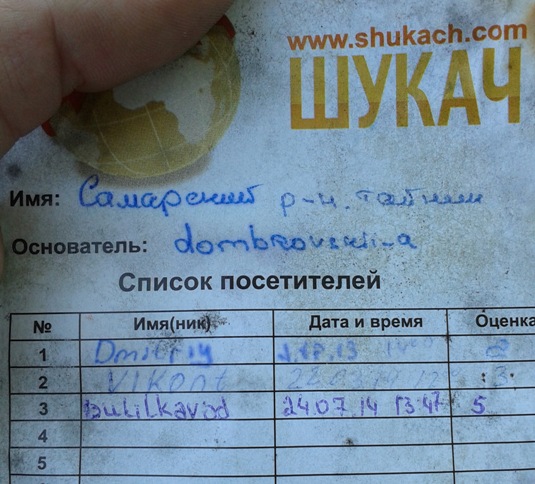 www.shukach.com
ШУКАЧ
Имя: Самарский р-н.
Основатель: dombrovskii-a
Список посетителей
№ Имя(ник) Дата и время Оценка
1 Dmitriy
2 Vikont
3 butilkavod 24.07.14 13:47 5
4
5